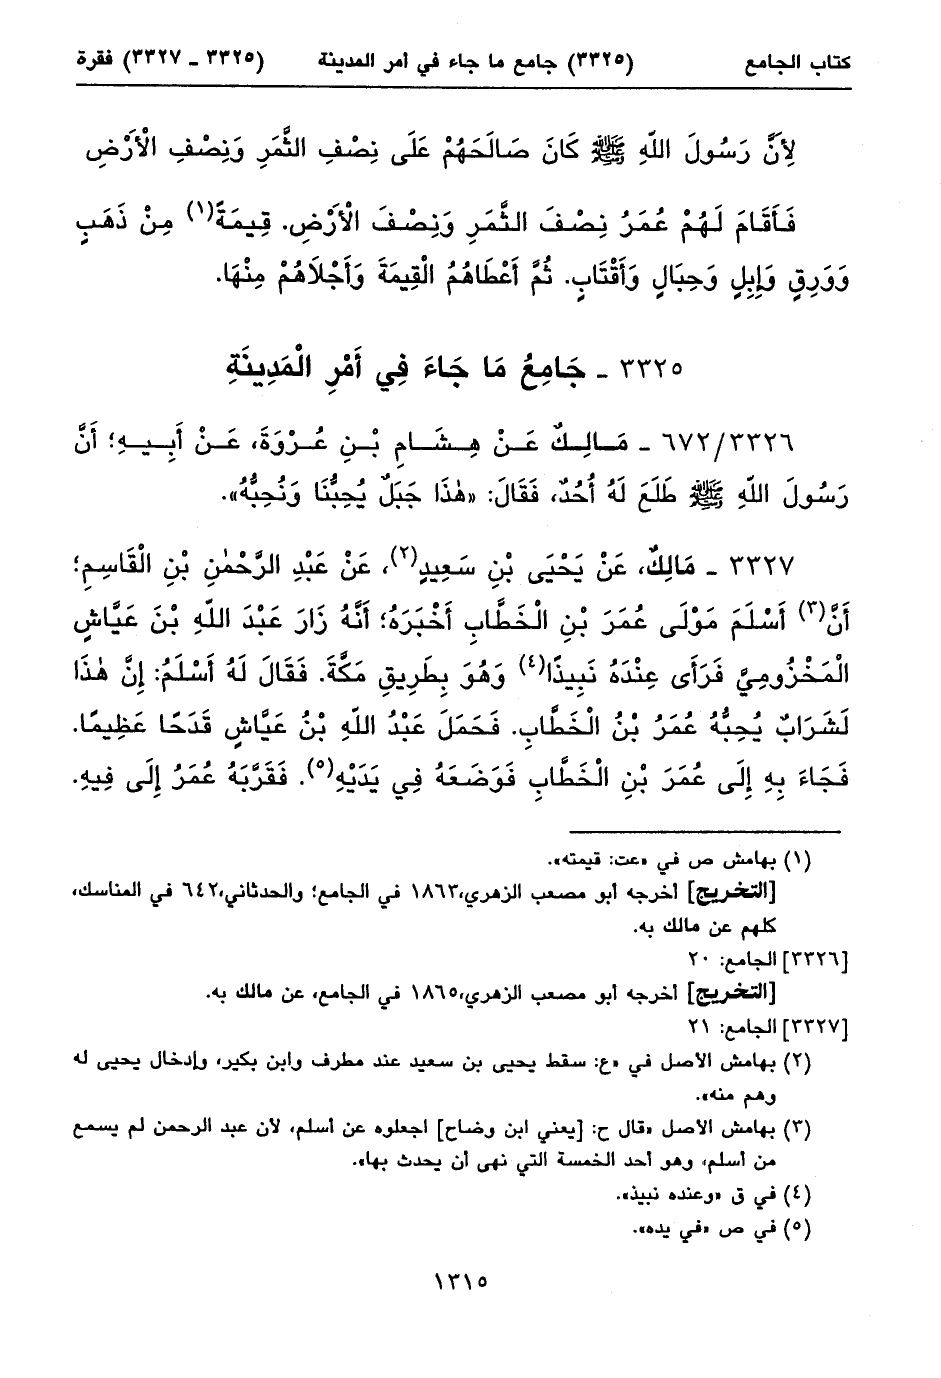 كتاب الجامع (٣٣٢٥) جامع ما جاء في أمر المدينة (٣٣٢٥ ـ ٣٣٢٧) فقرة
لِأَنَّ رَسُولَ اللّهِ ﷺ كَانَ صَالَحَهُمْ عَلَى نِصْفِ الثَّمَرِ وَنِصْفِ الْأَرْضِ
فَأَقَامَ لَهُمْ عُمَرُ نِصْفَ الثَّمَرِ وَنِصْفَ الْأَرْضِ. قِيمَةً(١) مِنْ ذَهَبٍ
وَوَرِقٍ وَإِبِلٍ وَحِبَالٍ وَأَقْتَابٍ. ثُمَّ أَعْطَاهُمُ الْقِيمَةَ وَأَجْلَاهُمْ مِنْهَا.
٣٣٢٥ ـ جَامِعُ مَا جَاءَ فِي أَمْرِ الْمَدِينَةِ
٦٧٢/٣٣٢٦ ـ مَالِكٌ عَنْ هِشَامِ بْنِ عُرْوَةَ، عَنْ أَبِيهِ؛ أَنَّ
رَسُولَ اللّهِ ﷺ طَلَعَ لَهُ أُحُدٌ، فَقَالَ: «هٰذَا جَبَلٌ يُحِبُّنَا وَنُحِبُّهُ».
٣٣٢٧ ـ مَالِكٌ، عَنْ يَحْيَى بْنِ سَعِيدٍ(٢)، عَنْ عَبْدِ الرَّحْمٰنِ بْنِ الْقَاسِمِ؛
أَنَّ(٣) أَسْلَمَ مَوْلَى عُمَرَ بْنِ الْخَطَّابِ أَخْبَرَهُ؛ أَنَّهُ زَارَ عَبْدَ اللّهِ بْنَ عَيَّاشٍ
الْمَخْزُومِيَّ فَرَأَى عِنْدَهُ نَبِيذًا(٤) وَهُوَ بِطَرِيقِ مَكَّةَ. فَقَالَ لَهُ أَسْلَمُ: إِنَّ هٰذَا
لَشَرَابٌ يُحِبُّهُ عُمَرُ بْنُ الْخَطَّابِ. فَحَمَلَ عَبْدُ اللّهِ بْنُ عَيَّاشٍ قَدَحًا عَظِيمًا.
فَجَاءَ بِهِ إِلَى عُمَرَ بْنِ الْخَطَّابِ فَوَضَعَهُ فِي يَدَيْهِ(٥). فَقَرَّبَهُ عُمَرُ إِلَى فِيهِ.
(١) بهامش ص في «عت: قيمته».
[التخريج] أخرجه أبو مصعب الزهري،١٨٦٣ في الجامع؛ والحدثاني،٦٤٢ في المناسك،
كلهم عن مالك به.
[٣٣٢٦] الجامع: ٢٠
[التخريج] أخرجه أبو مصعب الزهري،١٨٦٥ في الجامع، عن مالك به.
[٣٣٢٧] الجامع: ٢١
(٢) بهامش الأصل في «ع: سقط يحيى بن سعيد عند مطرف وابن بكير، وإدخال يحيى له
وهم منه».
(٣) بهامش الأصل «قال ح: [يعني ابن وضاح] اجعلوه عن أسلم، لأن عبد الرحمن لم يسمع
من أسلم، وهو أحد الخمسة التي نهى أن يحدث بها».
(٤) في ق «وعنده نبيذ».
(٥) في ص «في يده».
١٣١٥